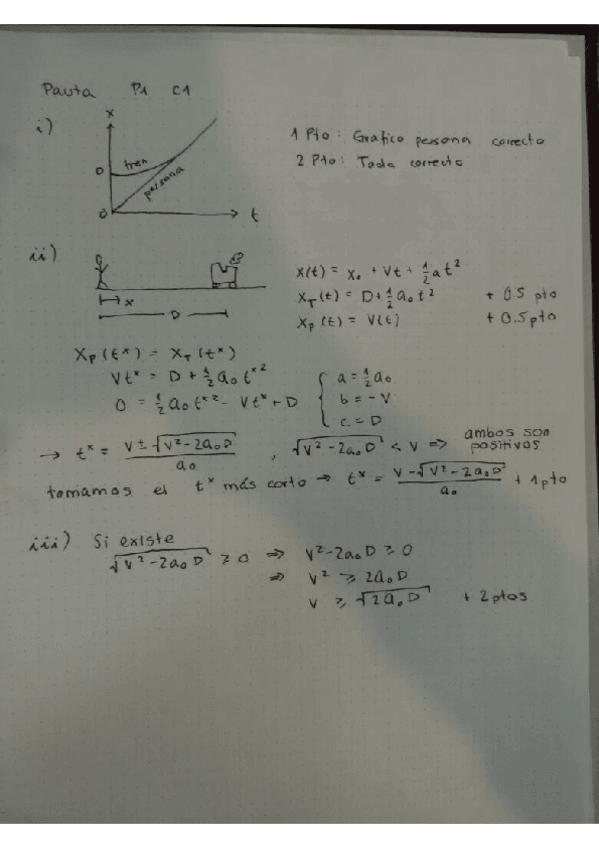 Pauta P1 C1
i)
x
D
tren
persona
0
t
1 Pto: Grafico persona correcto
2 Pto: Todo correcto
ii)
x
D
x(t) = x₀ + Vt + ½at²
x_T(t) = D + ½a₀t² + 0.5 pto
x_P(t) = V(t) + 0.5 pto
x_P(t*) = x_T(t*)
Vt* = D + ½a₀t*²
0 = ½a₀t*² - Vt* + D
{ a = ½a₀
b = -V
c = D
→ t* = (V ± √(V² - 2a₀D)) / a₀ , √(V² - 2a₀D) < V ⇒ ambos son positivos
tomamos el t* más corto → t* = (V - √(V² - 2a₀D)) / a₀ + 1 pto
iii) Si existe
√(V² - 2a₀D) ≥ 0 ⇒ V² - 2a₀D ≥ 0
⇒ V² ≥ 2a₀D
V ≥ √(2a₀D) + 2 ptos